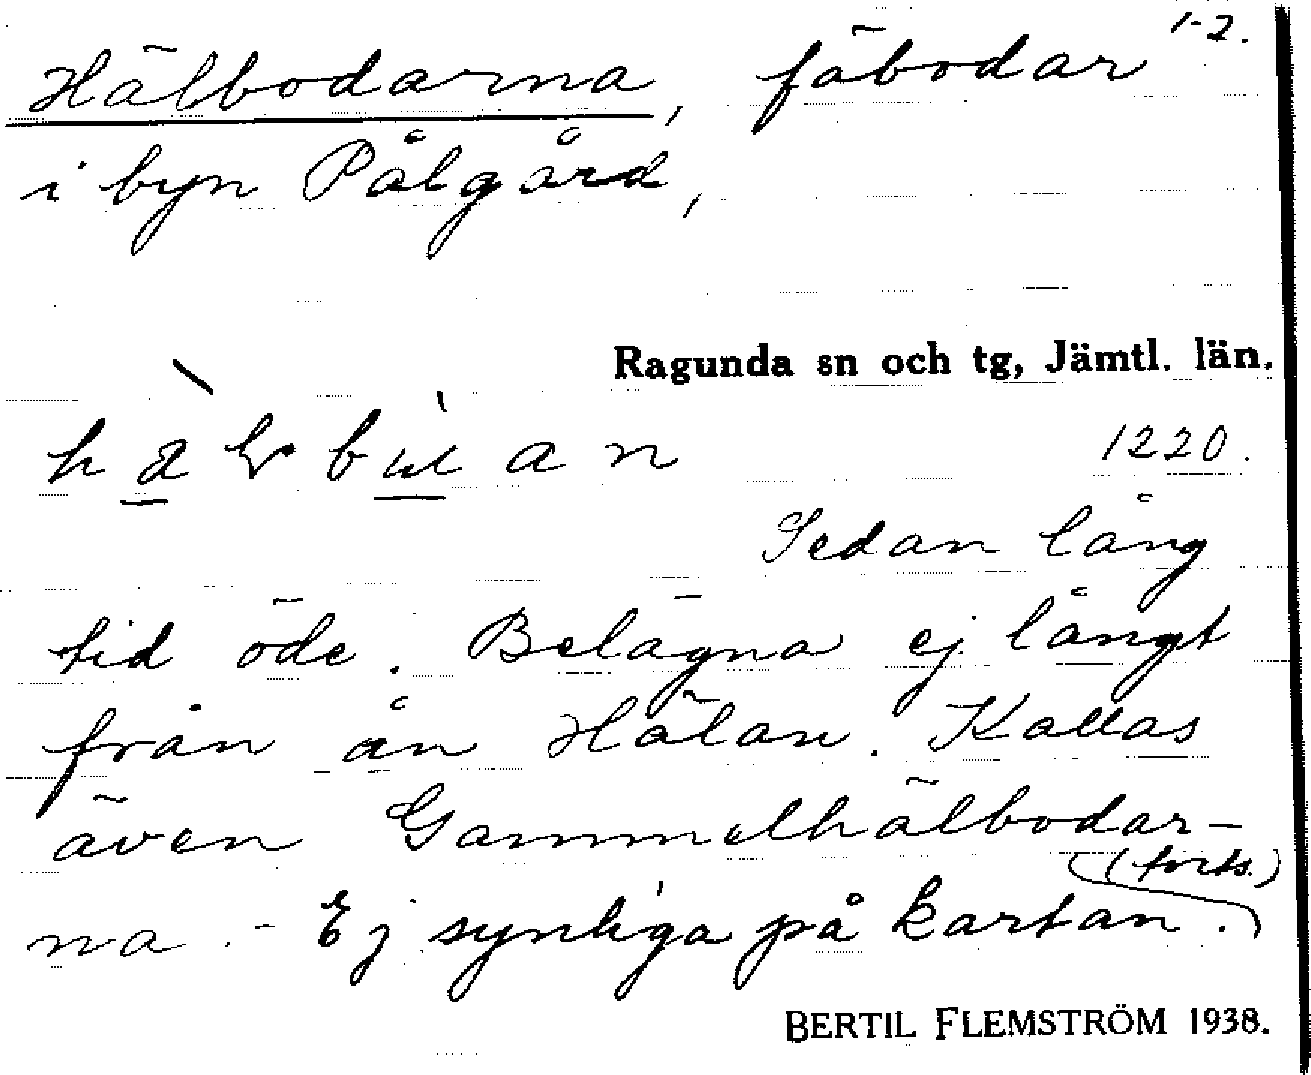 1-2.
Hälbodarna, fäbodar
i byn Pålgård,
Ragunda sn och tg, Jämtl. län.
1220.
Sedan lång
tid öde. Belägna ej långt
från ån Hälån. Kallas
även Gammelhälbodar-
(forts.)
na. - Ej synliga på kartan.
BERTIL FLEMSTRÖM 1938.